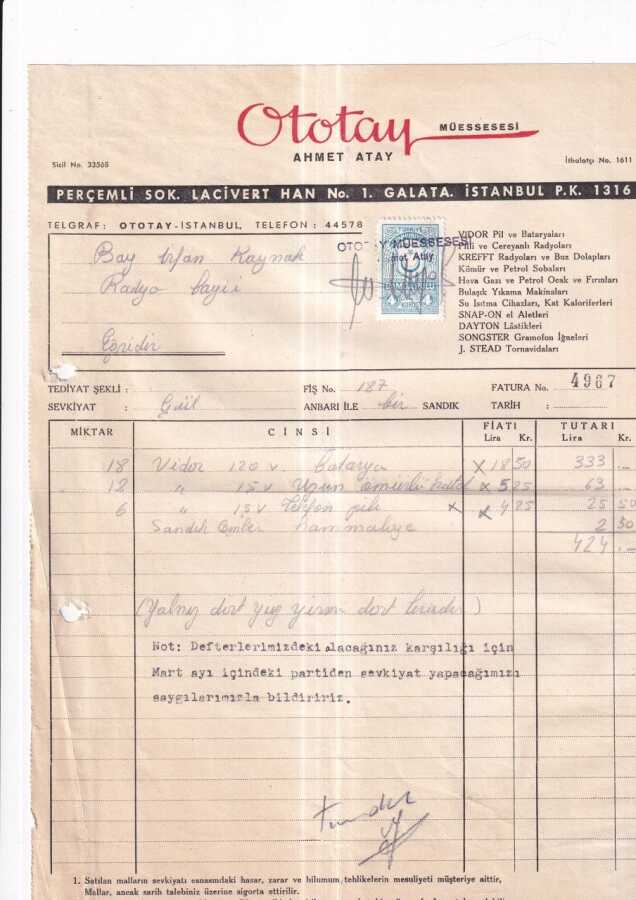 Ototay MÜESSESESİ
AHMET ATAY
Sicil No. 33565
İthalatçı No. 1611
PERÇEMLİ SOK. LACİVERT HAN No. 1. GALATA. İSTANBUL P.K. 1316
TELGRAF: OTOTAY-İSTANBUL, TELEFON: 44578
OTOTAY MÜESSESESİ
Ahmet Atay
Bay İrfan Kaynak
Radyo bayii
Eğridir
VİDOR Pil ve Bataryaları
Pilli ve Cereyanlı Radyoları
KREFFT Radyoları ve Buz Dolapları
Kömür ve Petrol Sobaları
Hava Gazı ve Petrol Ocak ve Fırınları
Bulaşık Yıkama Makinaları
Su Isıtma Cihazları, Kat Kaloriferleri
SNAP-ON el Aletleri
DAYTON Lâstikleri
SONGSTER Gramofon İğneleri
J. STEAD Tornavidaları
TEDİYAT ŞEKLİ : FİŞ No. 187 FATURA No. 4967
SEVKİYAT : Gül ANBARI İLE bir SANDIK TARİH :
MİKTAR CİNSİ FİATI TUTARI
Lira Kr. Lira Kr.
18 Vidor 120 v. Batarya x 18 50 333 .-
12 " 1.5 v Uzun ömürlü x 5 25 63 .-
6 " 1.5 v Telefon pili x 4 25 25 50
Sandık Ember hammaliye 2 30
424 .-
(Yalnız dört yüz yirmi dört liradır)
Not: Defterlerimizdeki alacağınız karşılığı için
Mart ayı içindeki partiden sevkiyat yapacağımızı
saygılarımızla bildiririz.
1. Satılan malların sevkiyatı esnasındaki hasar, zarar ve bilumum tehlikelerin mesuliyeti müşteriye aittir,
Mallar, ancak sarih talebiniz üzerine sigorta ettirilir.